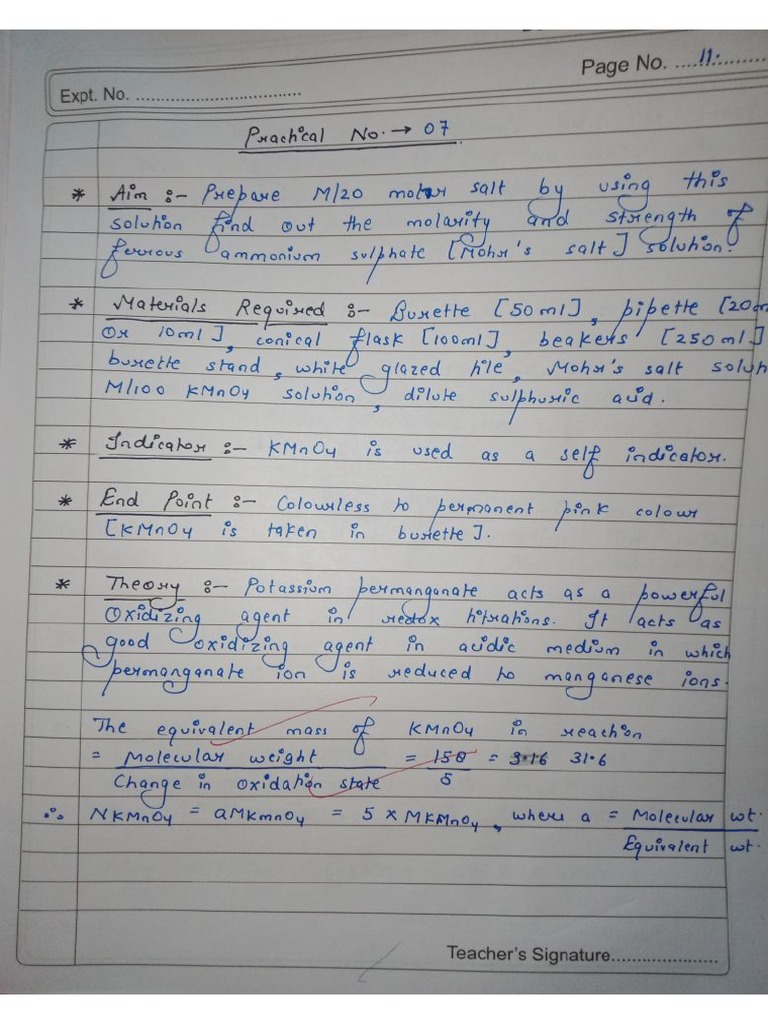 Page No. ....11.........
Expt. No. ..................................
Practical No. → 07
* Aim :- Prepare M/20 molar salt by using this
solution find out the molarity and strength of
ferrous ammonium sulphate [Mohr's salt] solution.
* Materials Required :- Burette [50ml], pipette [20m
or 10ml], conical flask [100ml], beakers [250ml]
burette stand, white glazed tile, Mohr's salt solut
M/100 KMnO4 solution, dilute sulphuric acid.
* Indicator :- KMnO4 is used as a self indicator.
* End Point :- Colourless to permanent pink colour
[KMnO4 is taken in burette].
* Theory :- Potassium permanganate acts as a powerful
oxidizing agent in redox titrations. It acts as
good oxidizing agent in acidic medium in which
permanganate ion is reduced to manganese ions.
The equivalent mass of KMnO4 in reaction
= Molecular weight = 158 = 3.16 31.6
Change in oxidation state 5
∴ NKMnO4 = aMKmnO4 = 5 × MKMnO4, where a = Molecular wt.
Equivalent wt.
Teacher's Signature.....................